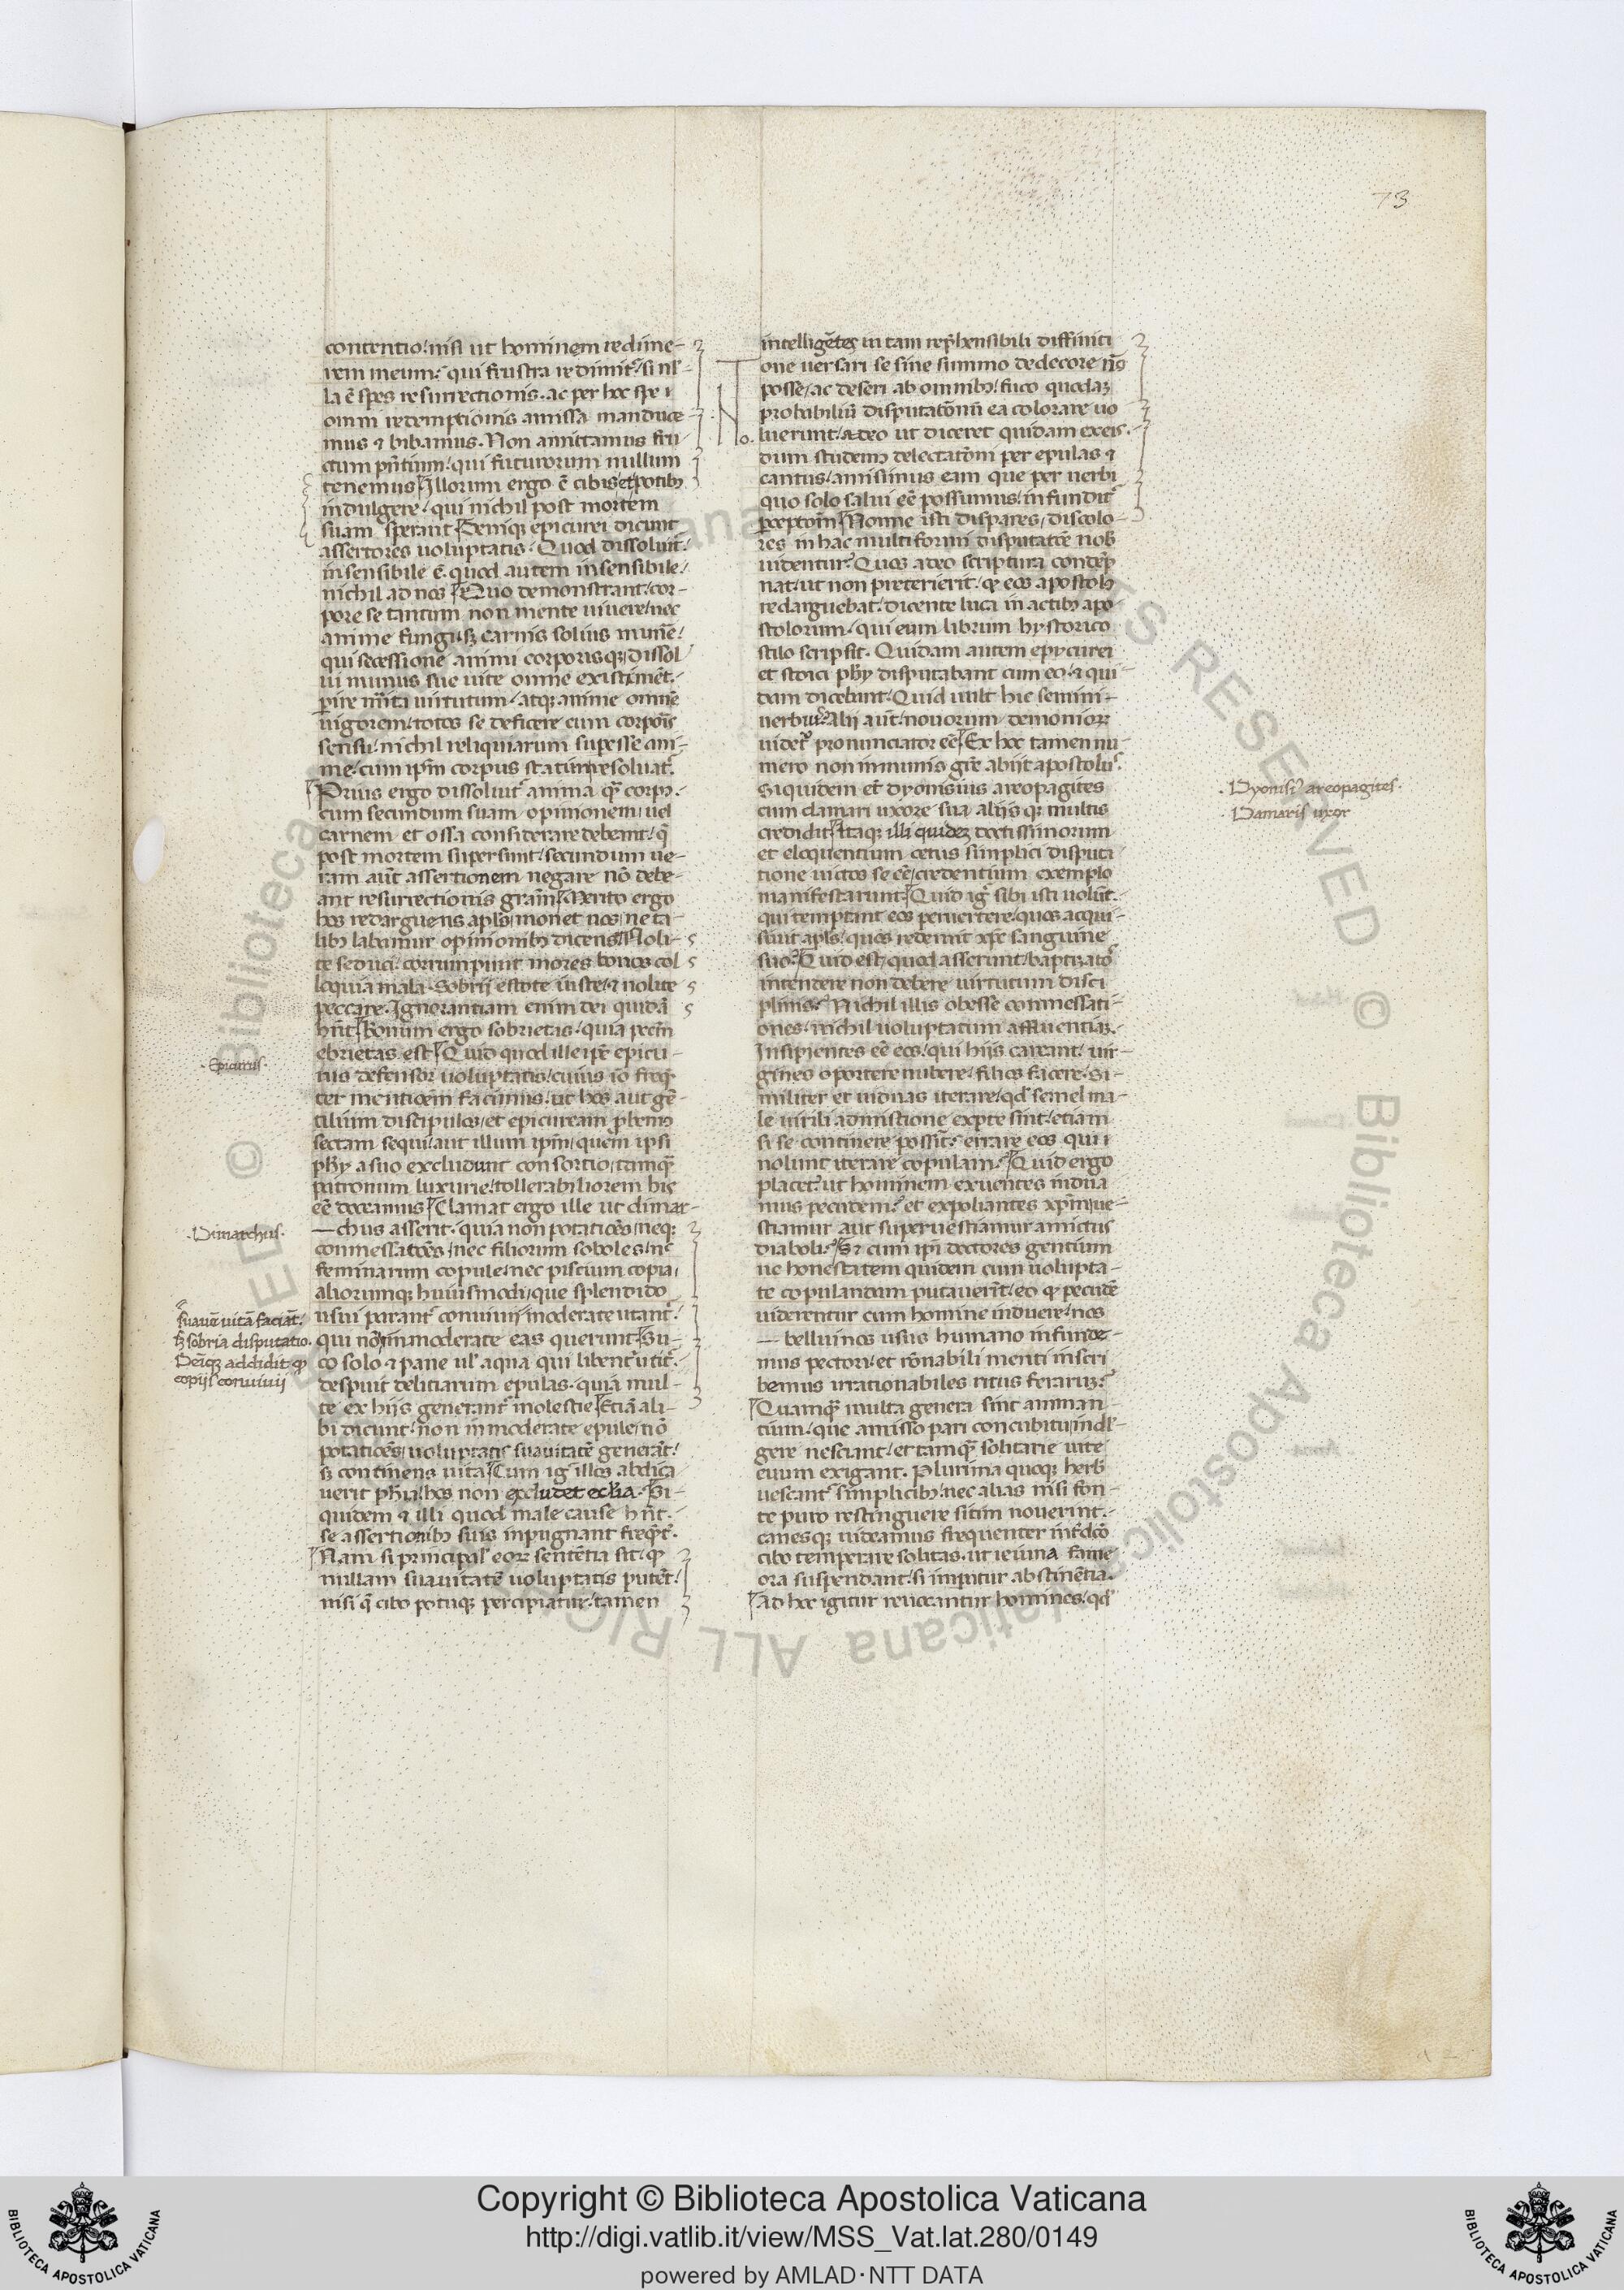 73
contentio: nisi ut hominem redime-
rem meum: qui frustra redimit᷑: si nl̕-
la ē spes resurrectionis. ac per hoc spe i
omni redemptionis amissa manduce-
mus ⁊ bibamus. Non amittamus fru
ctum pn̄tium: qui futurorum nullum
tenemus Illorum ergo ē cibis et potibꝫ
indulgere: qui nichil post mortem
suam sperant Deniqꝫ epicurei dicunt
assertores uoluptatis. Quod dissoluit᷑:
insensibile ē. quod autem insensibile:
nichil ad nos Quo demonstrant: cor-
pore se tantum non mente uiuere: nec
anime fungi sꝫ carnis solius mune̅:
qui secessione animi corporisqꝫ dissol
ui munus sue uite omne existime̅t:
ꝑire mērita uirtutum: atqꝫ anime omnē
uigorem: totos se deficere cum corporis
sensu: nichil reliquiarum supesse ani-
me: cum ipm̄ corpus statim resoluat᷑:
Prius ergo dissoluit᷑ anima qꝫ corpꝫ.
cum secundum suam opinionem uel
carnem et ossa considerare debeant: q̄
post mortem supersunt: secundum ue-
ram aut̄ assertionem negare nō debe-
ant resurrectionis gram̄ Merito ergo
hos redarguens apls̄ monet nos ne ta-
libꝫ labamur opinionibꝫ dicens Noli-
te seduci: corrumpunt mores bonos col
loquia mala. Sobrij estote iuste: ⁊ nolite
peccare. Ignorantiam enim dei quidā
hn̄t Bonum ergo sobrietas: quia pectm̄
ebrietas est Quid quod ille ip̄e epicu-
rus defensor uoluptatis: cuius iō freq̄
ter mentionem facimus: ut hos aut ge̅-
tilium discipulos: et epicuream ꝓbemꝫ
sectam sequi: aut illum ipm̄: quem ipsi
phy a suo excludunt consortio: tamqꝫ
patronum luxurie: tollerabiliorem his
eē doceamus Clamat ergo ille ut dimar-
chus asserit. quia non potatioēs neqꝫ
commessatioēs: nec filiorum soboles: nc̄
feminarum copule: nec piscium copia:
aliorumqꝫ huiusmodi: que splendido
usui parant᷑ conuiuij moderate utant᷑:
qui nō inmoderate eas querunt Su-
co solo ⁊ pane ul̕ aqua qui libent᷑ utit᷑:
despuit delitiarum epulas. quia mul-
te ex hijs generant᷑ molestie Etiā ali-
bi dicunt: non inmoderate epule: nō
potatioēs uoluptatis suauitatē generāt:
sꝫ continens uita Cum ig̕ illos abdica
uerit phia: hos non excludet ecclia. Si-
quidem ⁊ illi quod male cause hn̄t.
se assertionibꝫ suis inpugnant freqn̄t᷑.
Nam si principal̕ eoꝝ sententia sit: qꝫ
nullam suauitatē uoluptatis putēt:
nisi q̄ cibo potuqꝫ percipiatur: tamen
Epicurus.
Dimarchus.
suauē uitā faciāt:
sꝫ sobria disputatio.
Deiqꝫ addidit qꝫ
copijs conuiuij
No.
intelligētes in tam rep̄hensibili diffiniti
one uersari se sine summo dedecore nō
posse: ac deseri ab omnibꝫ: fuco quodaꝫ
probabiliū disputatōnū ea colorare uo
luerunt: adeo ut diceret quidam ex eis.
dum studemꝫ delectatōni per epulas ⁊
cantus: amisimus eam que per uerbi
quo solo salui eē possumus: infundit᷑
p̄ceptom̄ Nonne isti dispares: discolo-
res in hac multiformi disputatōe nob̄
uidentur: Quos adeo scriptura condēp
nat: ut non preterierit: qꝫ eos apostolꝫ
redarguebat: dicente luca in actibꝫ apo
stolorum: qui eum librum hystorico
stilo scripsit. Quidam autem epycurei
et stoici phy disputabant cum eo: ⁊ qui-
dam dicebunt: Quid uult hic semini-
uerbius: Alij aut̄: nouorum demonioꝝ
uidet᷑ pronunciator eē Ex hoc tamen nu-
mero non inmunis gr̄e abijt apostolus:
siquidem et dyonisius areopagites
cum damari uxore sua alijsqꝫ multis
credidit Itaqꝫ illi quideꝫ doctissimorum
et eloquentium cetus simplici disputa
tione uictos se eē: credentium exemplo
manifestarunt Quid ig᷑ sibi isti uolūt.
qui temptant eos peruertere: quos acqui-
siuit apls̄: quos redemit xp̄c sanguine
suo: Quid est: quod asserunt: baptizatos
intendere non debere uirtutum disci
plinis: Nichil illis obesse commessati-
ones: nichil uoluptatum affluentiaꝫ.
Insipientes eē eos: qui hijs careant: uir-
gines oportere nubere: filios facere. Si-
militer et uiduas iterare: qd̄ semel ma-
le uirili admistione exꝑte sint: etiam
si se continere possīt: errare eos qui i
nolunt iterare copulam: Quid ergo
placet: ut hominem exuentes indua
mus pecudem: et expoliantes xp̄m: ue-
stiamur aut superuestiamur amictus
diaboli: Sꝫ cum ipi̅ doctores gentium
ue honestatem quidem cum uolupta-
te copulandam putauerīt: eo qꝫ pecudē
uiderentur cum homine induere: nos
belluinos usus humano infunde-
mus pectori: et rōnabili menti inscri
bemus irrationabiles ritus feraruꝫ:
Quamqꝫ multa genera sint animan-
tium: que amisso pari concubitu indul̕-
gere nesciant: et tamqꝫ solitarie uite
euum exigant. Plurima quoqꝫ herb̄
uescant᷑ simplicibꝫ: nec alias nisi fon-
te puro restinguere sitim nouerint:
canesqꝫ uideamus frequenter int᷑dc̄o
cibo temperare solitas. ut ieiuna fame
ora suspendant: si imꝑitur abstinētia.
Ad hoc igitur reuocantur homines: qd̄
Dyonisi᷑ areopagites.
Damaris uxor
Copyright © Biblioteca Apostolica Vaticana
http://digi.vatlib.it/view/MSS_Vat.lat.280/0149
powered by AMLAD·NTT DATA
BIBLIOTECA APOSTOLICA VATICANA
BIBLIOTECA APOSTOLICA VATICANA
© Biblioteca Apostolica Vaticana ALL RIGHTS RESERVED © Biblioteca Apostolica Vaticana ALL RIGHTS RESERVED